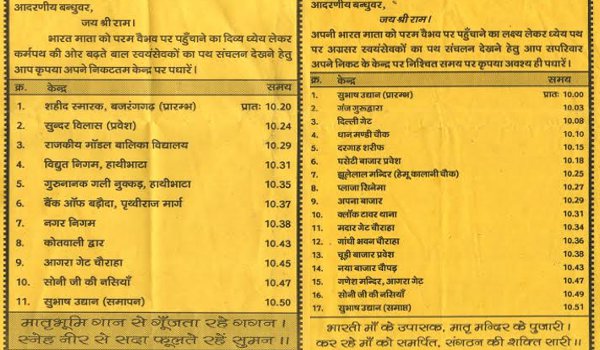 आदरणीय बन्धुवर,
जय श्री राम।
भारत माता को परम वैभव पर पहुँचाने का दिव्य ध्येय लेकर
कर्मपथ की ओर बढ़ते बाल स्वयंसेवकों का पथ संचलन देखने हेतु
आप कृपया अपने निकटतम केन्द्र पर पधारें।
क्र. केन्द्र समय
1. शहीद स्मारक, बजरंगगढ़ (प्रारम्भ) प्रातः 10.20
2. सुन्दर विलास (प्रवेश) 10.24
3. राजकीय मॉडल बालिका विद्यालय 10.29
4. विद्युत निगम, हाथीभाटा 10.31
5. गुरुनानक गली नुक्कड़, हाथीभाटा 10.35
6. बैंक ऑफ बड़ौदा, पृथ्वीराज मार्ग 10.37
7. नगर निगम 10.38
8. कोतवाली द्वार 10.43
9. आगरा गेट चौराहा 10.45
10. सोनी जी की नसियाँ 10.47
11. सुभाष उद्यान (समापन) 10.50
मातृभूमि गान से गूँजता रहे गगन।
स्नेह नीर से सदा फूलते रहें सुमन।।
आदरणीय बन्धुवर,
जय श्री राम।
अपनी भारत माता को परम वैभव पर पहुँचाने का लक्ष्य लेकर ध्येय पथ
पर अग्रसर स्वयंसेवकों का पथ संचलन देखने हेतु आप सपरिवार
अपने निकट के केन्द्र पर निश्चित समय पर कृपया अवश्य ही पधारें।
क्र. केन्द्र समय
1. सुभाष उद्यान (प्रारम्भ) प्रातः 10.00
2. गंज गुरुद्वारा 10.03
3. दिल्ली गेट 10.08
4. धान मण्डी चौक 10.10
5. दरगाह शरीफ 10.15
6. घसेटी बाजार प्रवेश 10.18
7. झूलेलाल मन्दिर (हेमू कालानी चौक) 10.25
8. प्लाजा सिनेमा 10.27
9. अपना बाजार 10.29
10. क्लॉक टावर थाना 10.31
11. मदार गेट चौराहा 10.34
12. गांधी भवन चौराहा 10.36
13. चूड़ी बाजार प्रवेश 10.38
14. नया बाजार चौपड़ 10.43
15. गणेश मन्दिर, आगरा गेट 10.47
16. सोनी जी की नसियाँ 10.49
17. सुभाष उद्यान (समाप्त) 10.51
भारती माँ के उपासक, मातृ मन्दिर के पुजारी।
कर रहे माँ को समर्पित, संगठन की शक्ति सारी।।